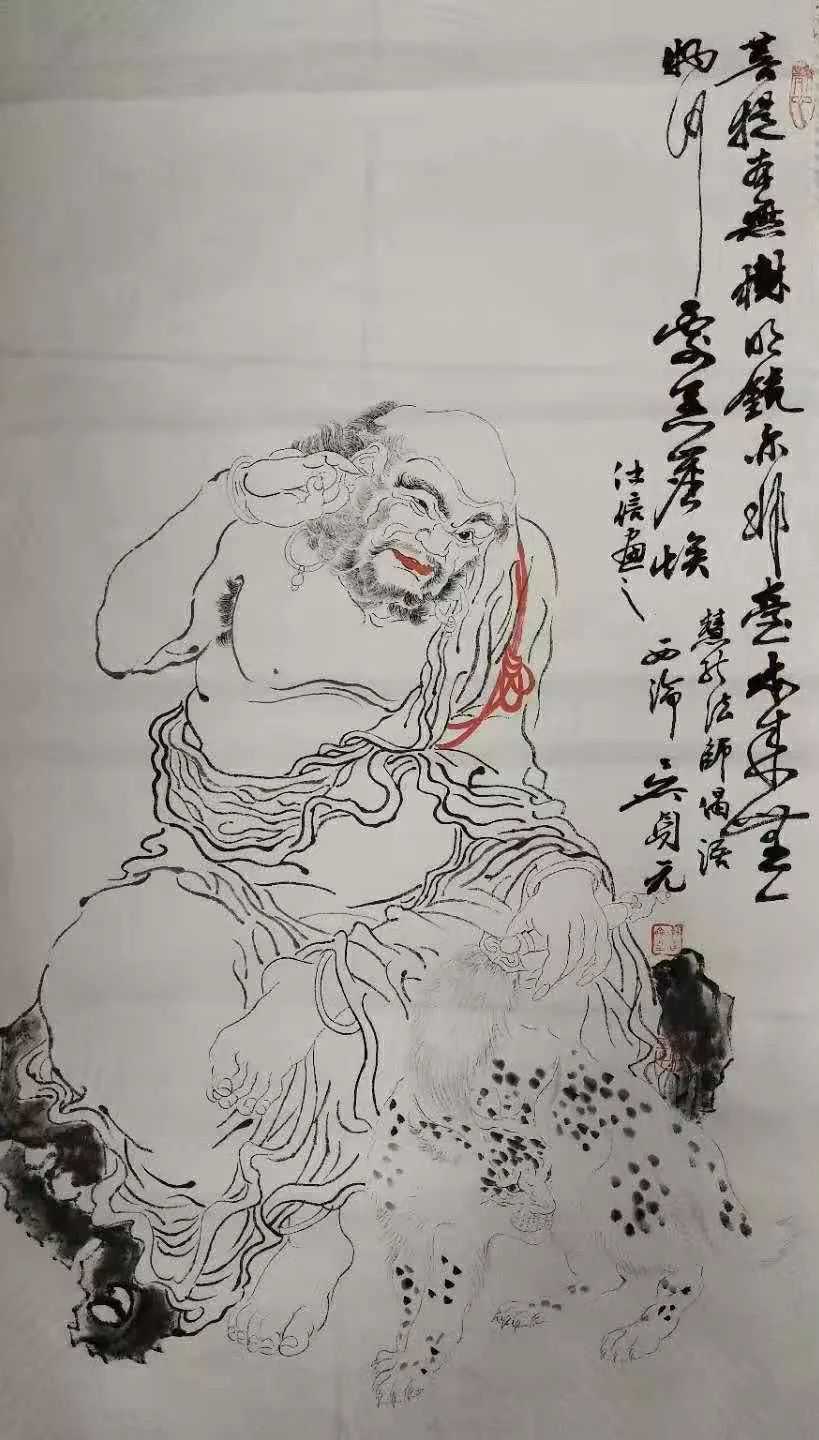 菩提本無樹明鏡亦非臺本來無一
物何處惹塵埃
慧能法師偈語
仕信畫之
西淪 吳貞元